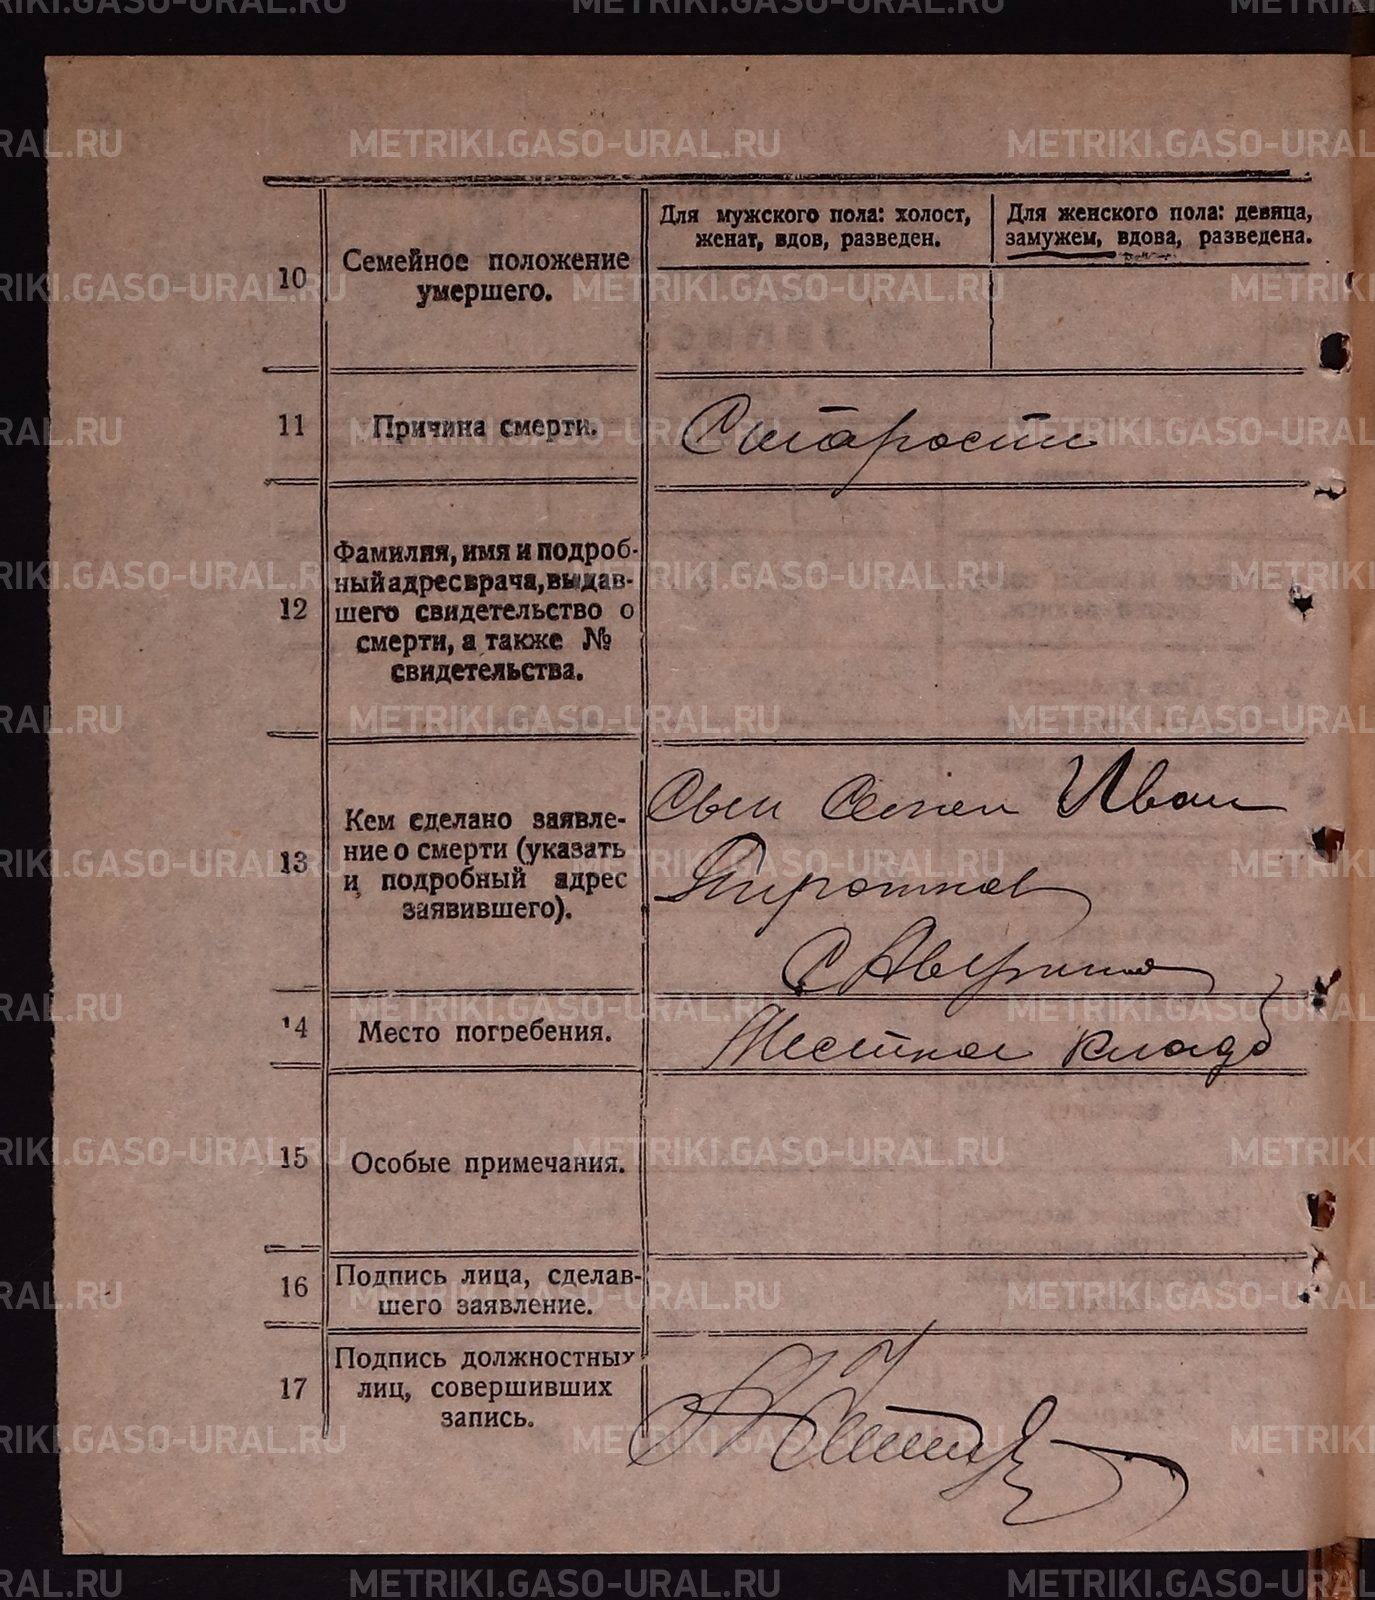 Для мужского пола: холост,
женат, вдов, разведен.
Для женского пола: девица,
замужем, вдова, разведена.
10 Семейное положение
умершего.
11 Причина смерти. Старости
12 Фамилия, имя и подроб-
ный адрес врача, выдав-
шего свидетельство о
смерти, а также №
свидетельства.
13 Кем сделано заявле-
ние о смерти (указать
и подробный адрес
заявившего).
Сын Иван
С Аверино
14 Место погребения. Местное кладб
15 Особые примечания.
16 Подпись лица, сделав-
шего заявление.
17 Подпись должностных
лиц, совершивших
запись.
METRIKI.GASO-URAL.RU